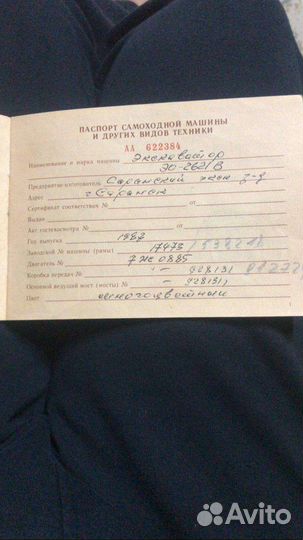 ПАСПОРТ САМОХОДНОЙ МАШИНЫ
И ДРУГИХ ВИДОВ ТЕХНИКИ
АА 622384
Наименование и марка машины Экскаватор
ЭО-2621В
Предприятие-изготовитель Саранский экск. з-д
Адрес г. Саранск
Сертификат соответствия № от
Выдан
Акт гостехосмотра № от
Год выпуска 1987
Заводской № машины (рамы) 17473
Двигатель № 7Ж0885
Коробка передач № 928131
Основной ведущий мост (мосты) № 928131
Цвет многоцветный
Avito